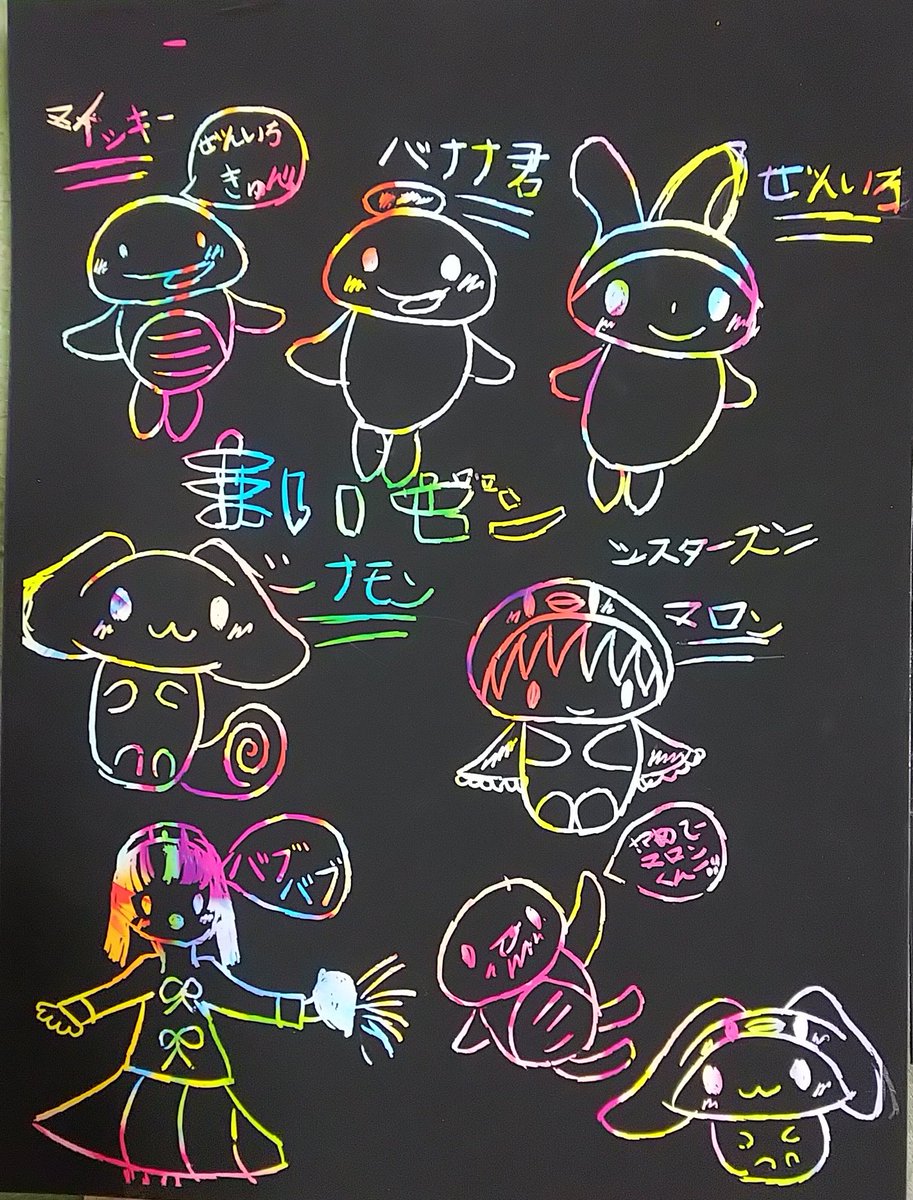 マイッキー
ぜんいち
きゅん
バナナ君
ぜんいち
まいぜん
シスターズン
シナモン
マロン
バブ
バブ
やめてー
マロン
くんー!!